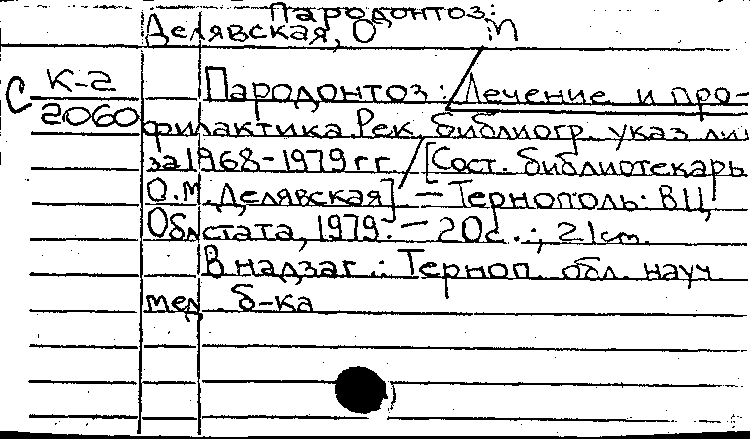 Пародонтоз:
Делявская, О М
С К-2
2060
Пародонтоз: Лечение и про-
филактика. Рек. библиогр. указ. лит
за 1968-1979 гг. / [Сост. библиотекарь
О.М. Делявская] – Тернополь: ВЦ
Облстата, 1979. – 20с.; 21 cm.
В надзаг.: Терноп. обл. науч.
мед. б-ка